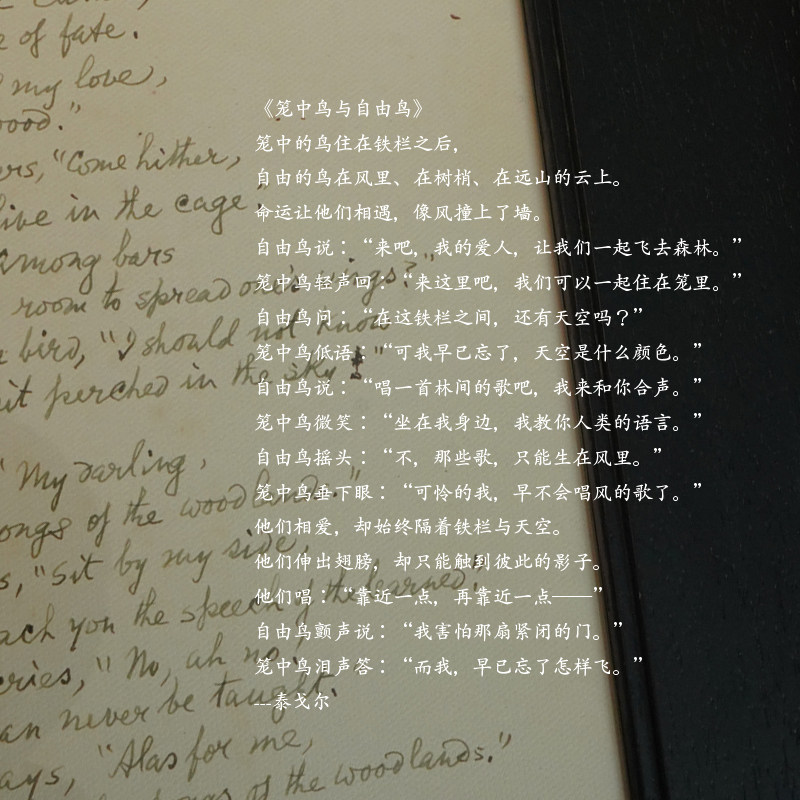 e of fate.
my love,
wood."
ers, "Come hither,
live in the cage,
among bars
room to spread one's wings?"
bird, "I should not know
sit perched in the sky."
"My darling,
songs of the woodlands."
"Sit by my side,
teach you the speech of the learned."
cries, "No, ah no!
can never be taught.
says, "Alas for me,
songs of the woodlands."
《笼中鸟与自由鸟》
笼中的鸟住在铁栏之后，
自由的鸟在风里、在树梢、在远山的云上。
命运让他们相遇，像风撞上了墙。
自由鸟说：“来吧，我的爱人，让我们一起飞去森林。”
笼中鸟轻声回：“来这里吧，我们可以一起住在笼里。”
自由鸟问：“在这铁栏之间，还有天空吗？”
笼中鸟低语：“可我早已忘了，天空是什么颜色。”
自由鸟说：“唱一首林间的歌吧，我来和你合声。”
笼中鸟微笑：“坐在我身边，我教你人类的语言。”
自由鸟摇头：“不，那些歌，只能生在风里。”
笼中鸟垂下眼：“可怜的我，早不会唱风的歌了。”
他们相爱，却始终隔着铁栏与天空。
他们伸出翅膀，却只能触到彼此的影子。
他们唱：“靠近一点，再靠近一点——”
自由鸟颤声说：“我害怕那扇紧闭的门。”
笼中鸟泪声答：“而我，早已忘了怎样飞。”
---泰戈尔